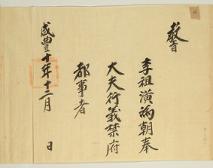 敎旨
李祖潢爲朝奉
大夫行義禁府
都事者
咸豐十年十二月　日